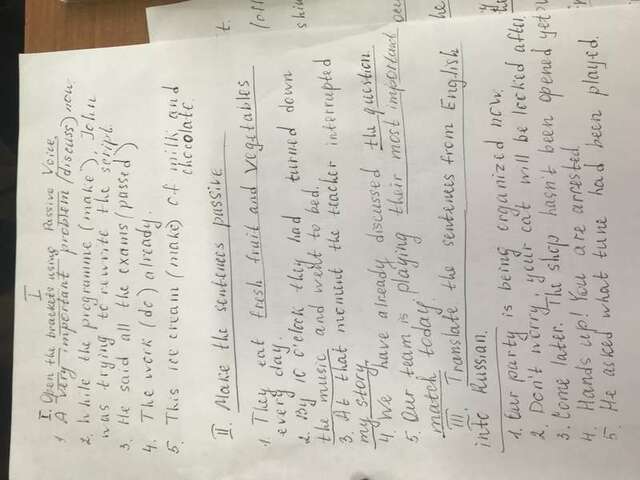 I
I. Open the brackets using Passive Voice.
1 A very important problem (discuss) now.
2. While the programme (make), John
was trying to rewrite the script
3. He said all the exams (passed)
4. The work (do) already.
5. This ice cream (make) of milk and
chocolate.
II. Make the sentences passive
1. They eat fresh fruit and vegetables
every day.
2. By 10 o'clock they had turned down
the music and went to bed.
3. At that moment the teacher interrupted
my story.
4. We have already discussed the question.
5. Our team is playing their most important
match today.
III. Translate the sentences from English
into Russian.
1. Our party is being organized now.
2. Don't worry, your cat will be looked after.
3. Come later. The shop hasn't been opened yet.
4. Hands up! You are arrested.
5. He asked what tune had been played.